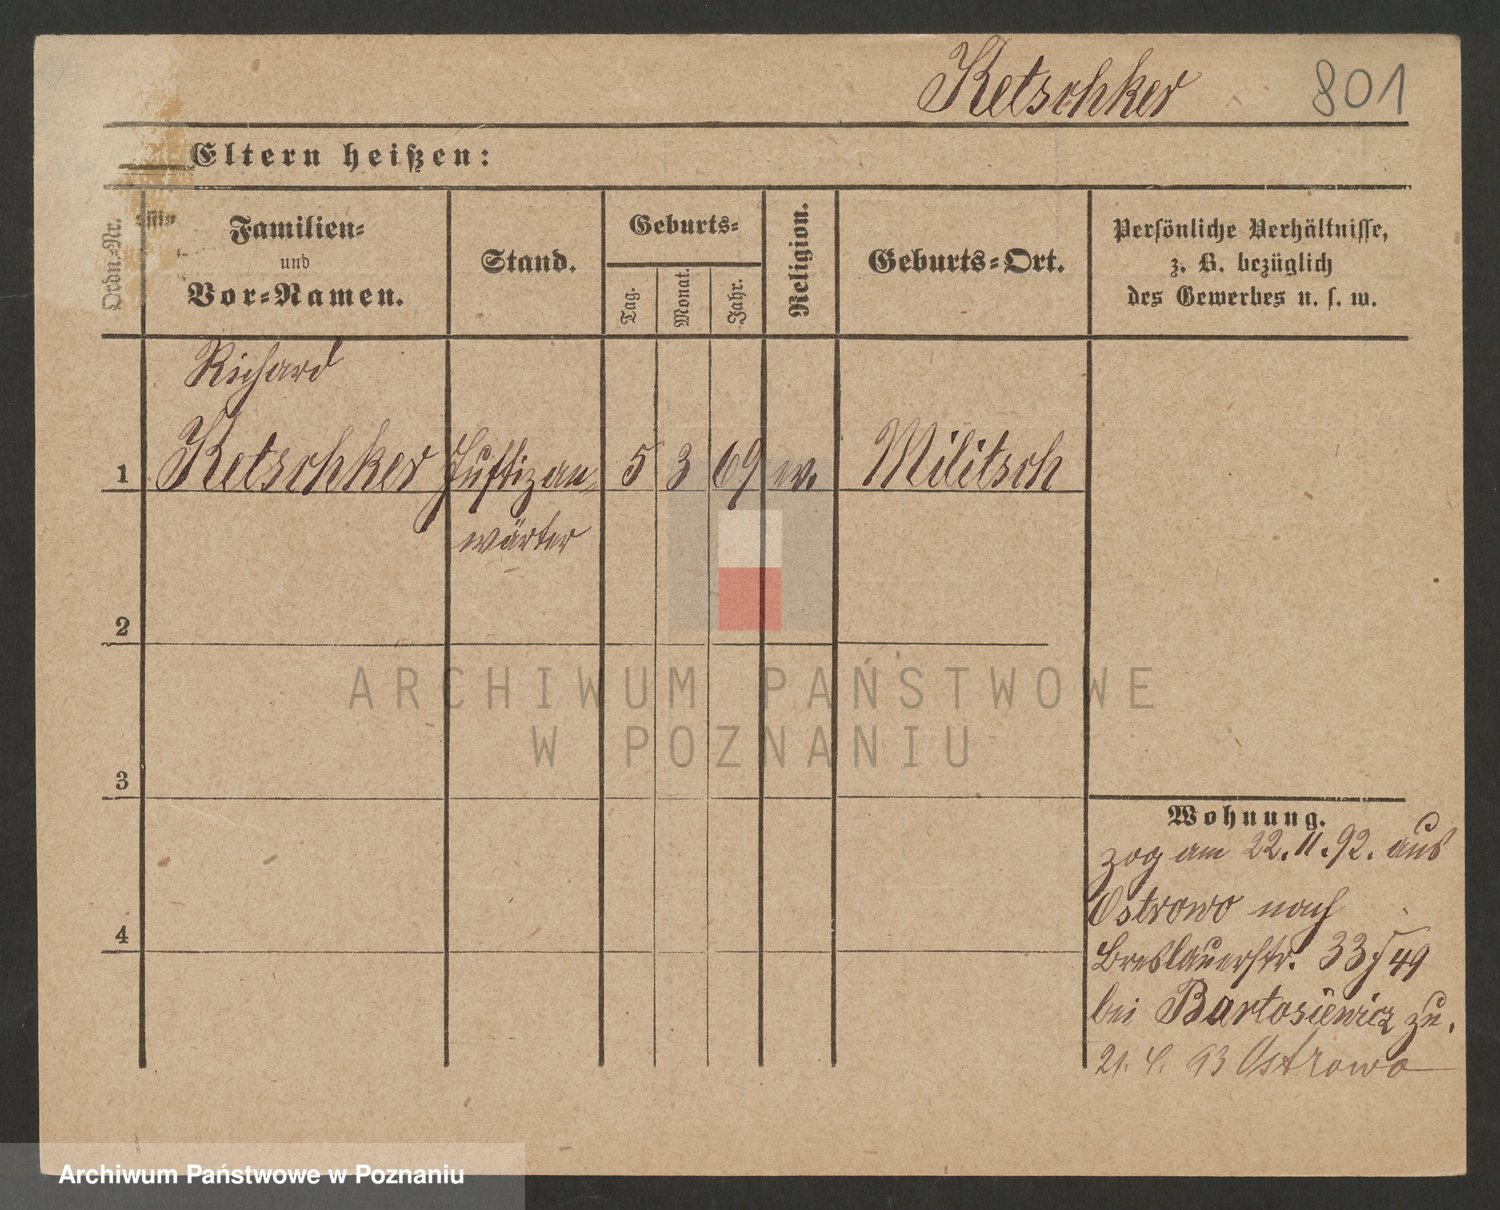 Ketschker 801
Eltern heißen:
Ordn.-Nr.
Familien-
und
Vor-Namen.
Stand.
Geburts-
Tag.
Monat.
Jahr.
Religion.
Geburts-Ort.
Persönliche Verhältnisse,
z. B. bezüglich
des Gewerbes u. s. w.
Richard
1 Ketschker Justizan- 5 3 69 ev. Militsch
wärter
2
ARCHIWUM PAŃSTWOWE
W POZNANIU
3
Wohnung.
zog am 22. 11. 92. aus
Ostrowo nach
4
Breslauerstr. 33/49
bei Bartosiewicz zu.
21. 4. 93 Ostrowo
Archiwum Państwowe w Poznaniu